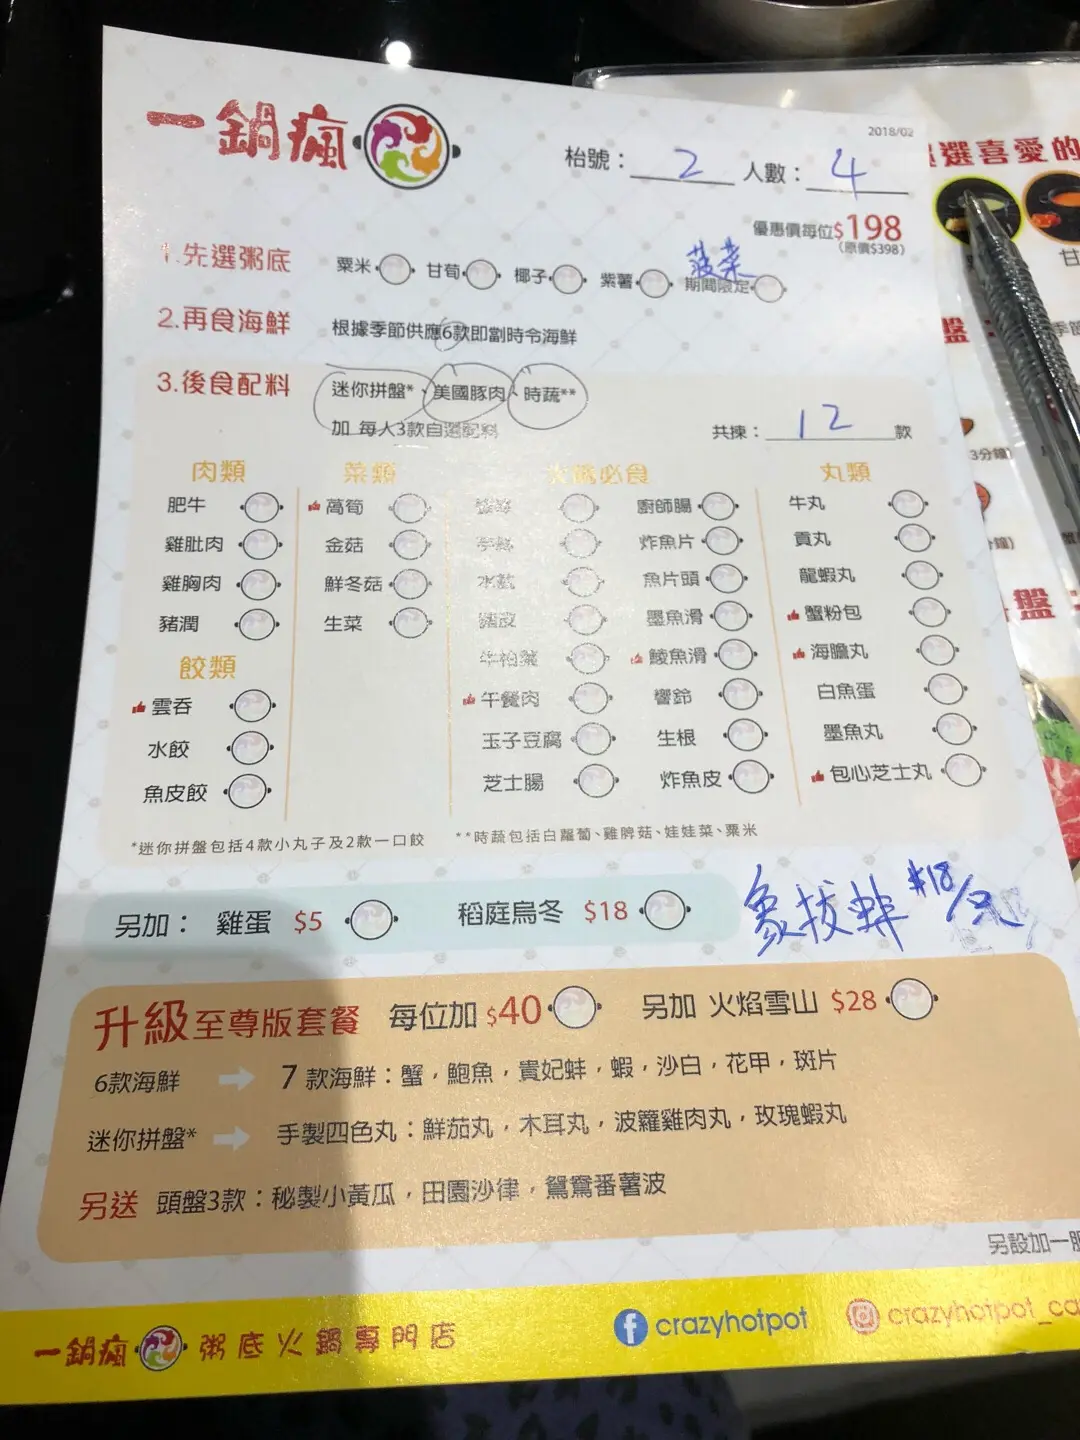 一鍋瘋
2018/02
枱號：2 人數：4
優惠價每位$198
(原價$398)
1.先選粥底 粟米 甘荀 椰子 紫薯 菠菜 期間限定
2.再食海鮮 根據季節供應6款即劏時令海鮮
3.後食配料 迷你拼盤*、美國豚肉、時蔬**
加 每人3款自選配料 共揀：12款
肉類 菜類 火鍋必食 丸類
肥牛 萵筍 廚師腸 牛丸
雞肶肉 金菇 炸魚片 貢丸
雞胸肉 鮮冬菇 魚片頭 龍蝦丸
豬潤 生菜 豬皮 墨魚滑 蟹粉包
餃類 牛柏葉 鯪魚滑 海膽丸
雲吞 午餐肉 響鈴 白魚蛋
水餃 玉子豆腐 生根 墨魚丸
魚皮餃 芝士腸 炸魚皮 包心芝士丸
*迷你拼盤包括4款小丸子及2款一口餃 **時蔬包括白蘿蔔、雞脾菇、娃娃菜、粟米
另加： 雞蛋 $5 稻庭烏冬 $18 象拔蚌 $18/
升級至尊版套餐 每位加 $40 另加 火焰雪山 $28
6款海鮮 7款海鮮：蟹，鮑魚，貴妃蚌，蝦，沙白，花甲，斑片
迷你拼盤* 手製四色丸：鮮茄丸，木耳丸，波籮雞肉丸，玫瑰蝦丸
另送 頭盤3款：秘製小黃瓜，田園沙律，鴛鴦番薯波
另設加一服
一鍋瘋 粥底火鍋專門店 crazyhotpot crazyhotpot_ca
選喜愛的
甘
盤：
季節
3分鐘)
鐘)
盤：